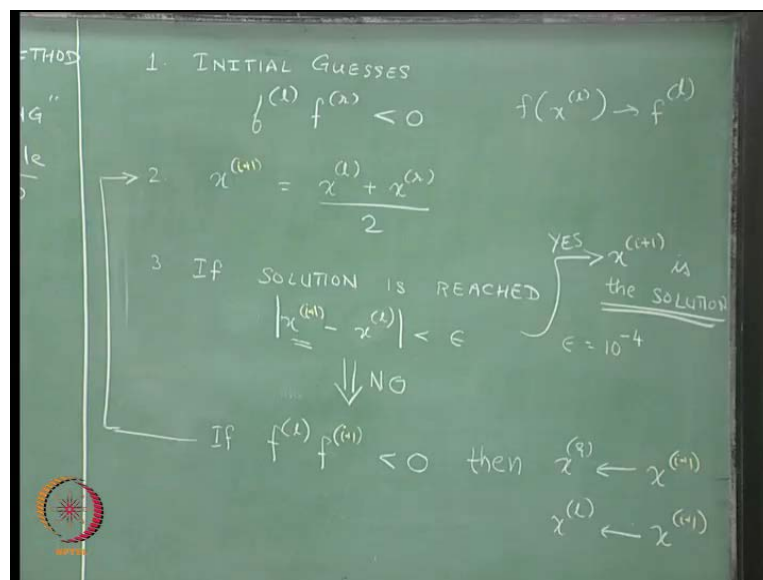 ETHOD
NG"
le
1. INITIAL GUESSES
f^(l) f^(r) < 0
f(x^(l)) → f^(l)
2. x^(i+1) = (x^(l) + x^(r)) / 2
3 If SOLUTION IS REACHED
|x^(i+1) - x^(l)| < ε
YES → x^(i+1) is
the SOLUTION
ε = 10^-4
⇓ NO
If f^(l) f^(i+1) < 0 then x^(r) ← x^(i+1)
x^(l) ← x^(i+1)
NPTEL